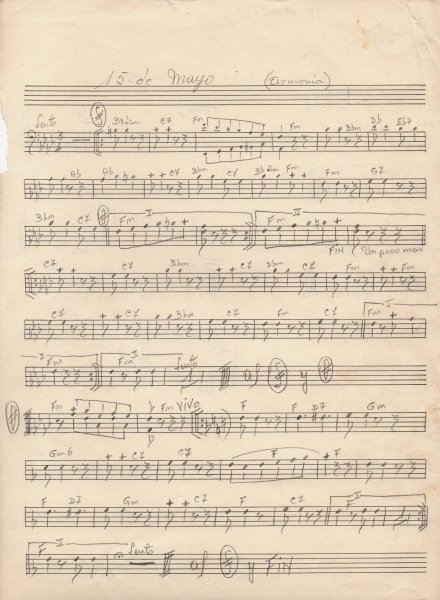 15-de Mayo (armonia)
Lento Bbdim C7 Fm Fm Bbm Db Eb7
Ab Ab C7 Bbm C7 Bbdim Fm Fm G7
Bbm C7 Fm I Fm II
FIN Un poco mas
C7 Bbm C7 Bbm C7 Fm Fm
Fm C7 Bbm C7 Fm C7 Fm I
Fm Fm II Lento al y
Fm Fm VIVO F F D7 Gm
Gm6 C7 C7 F F
F D7 Gm C7 F C7 F I
F II Lento al y FIN